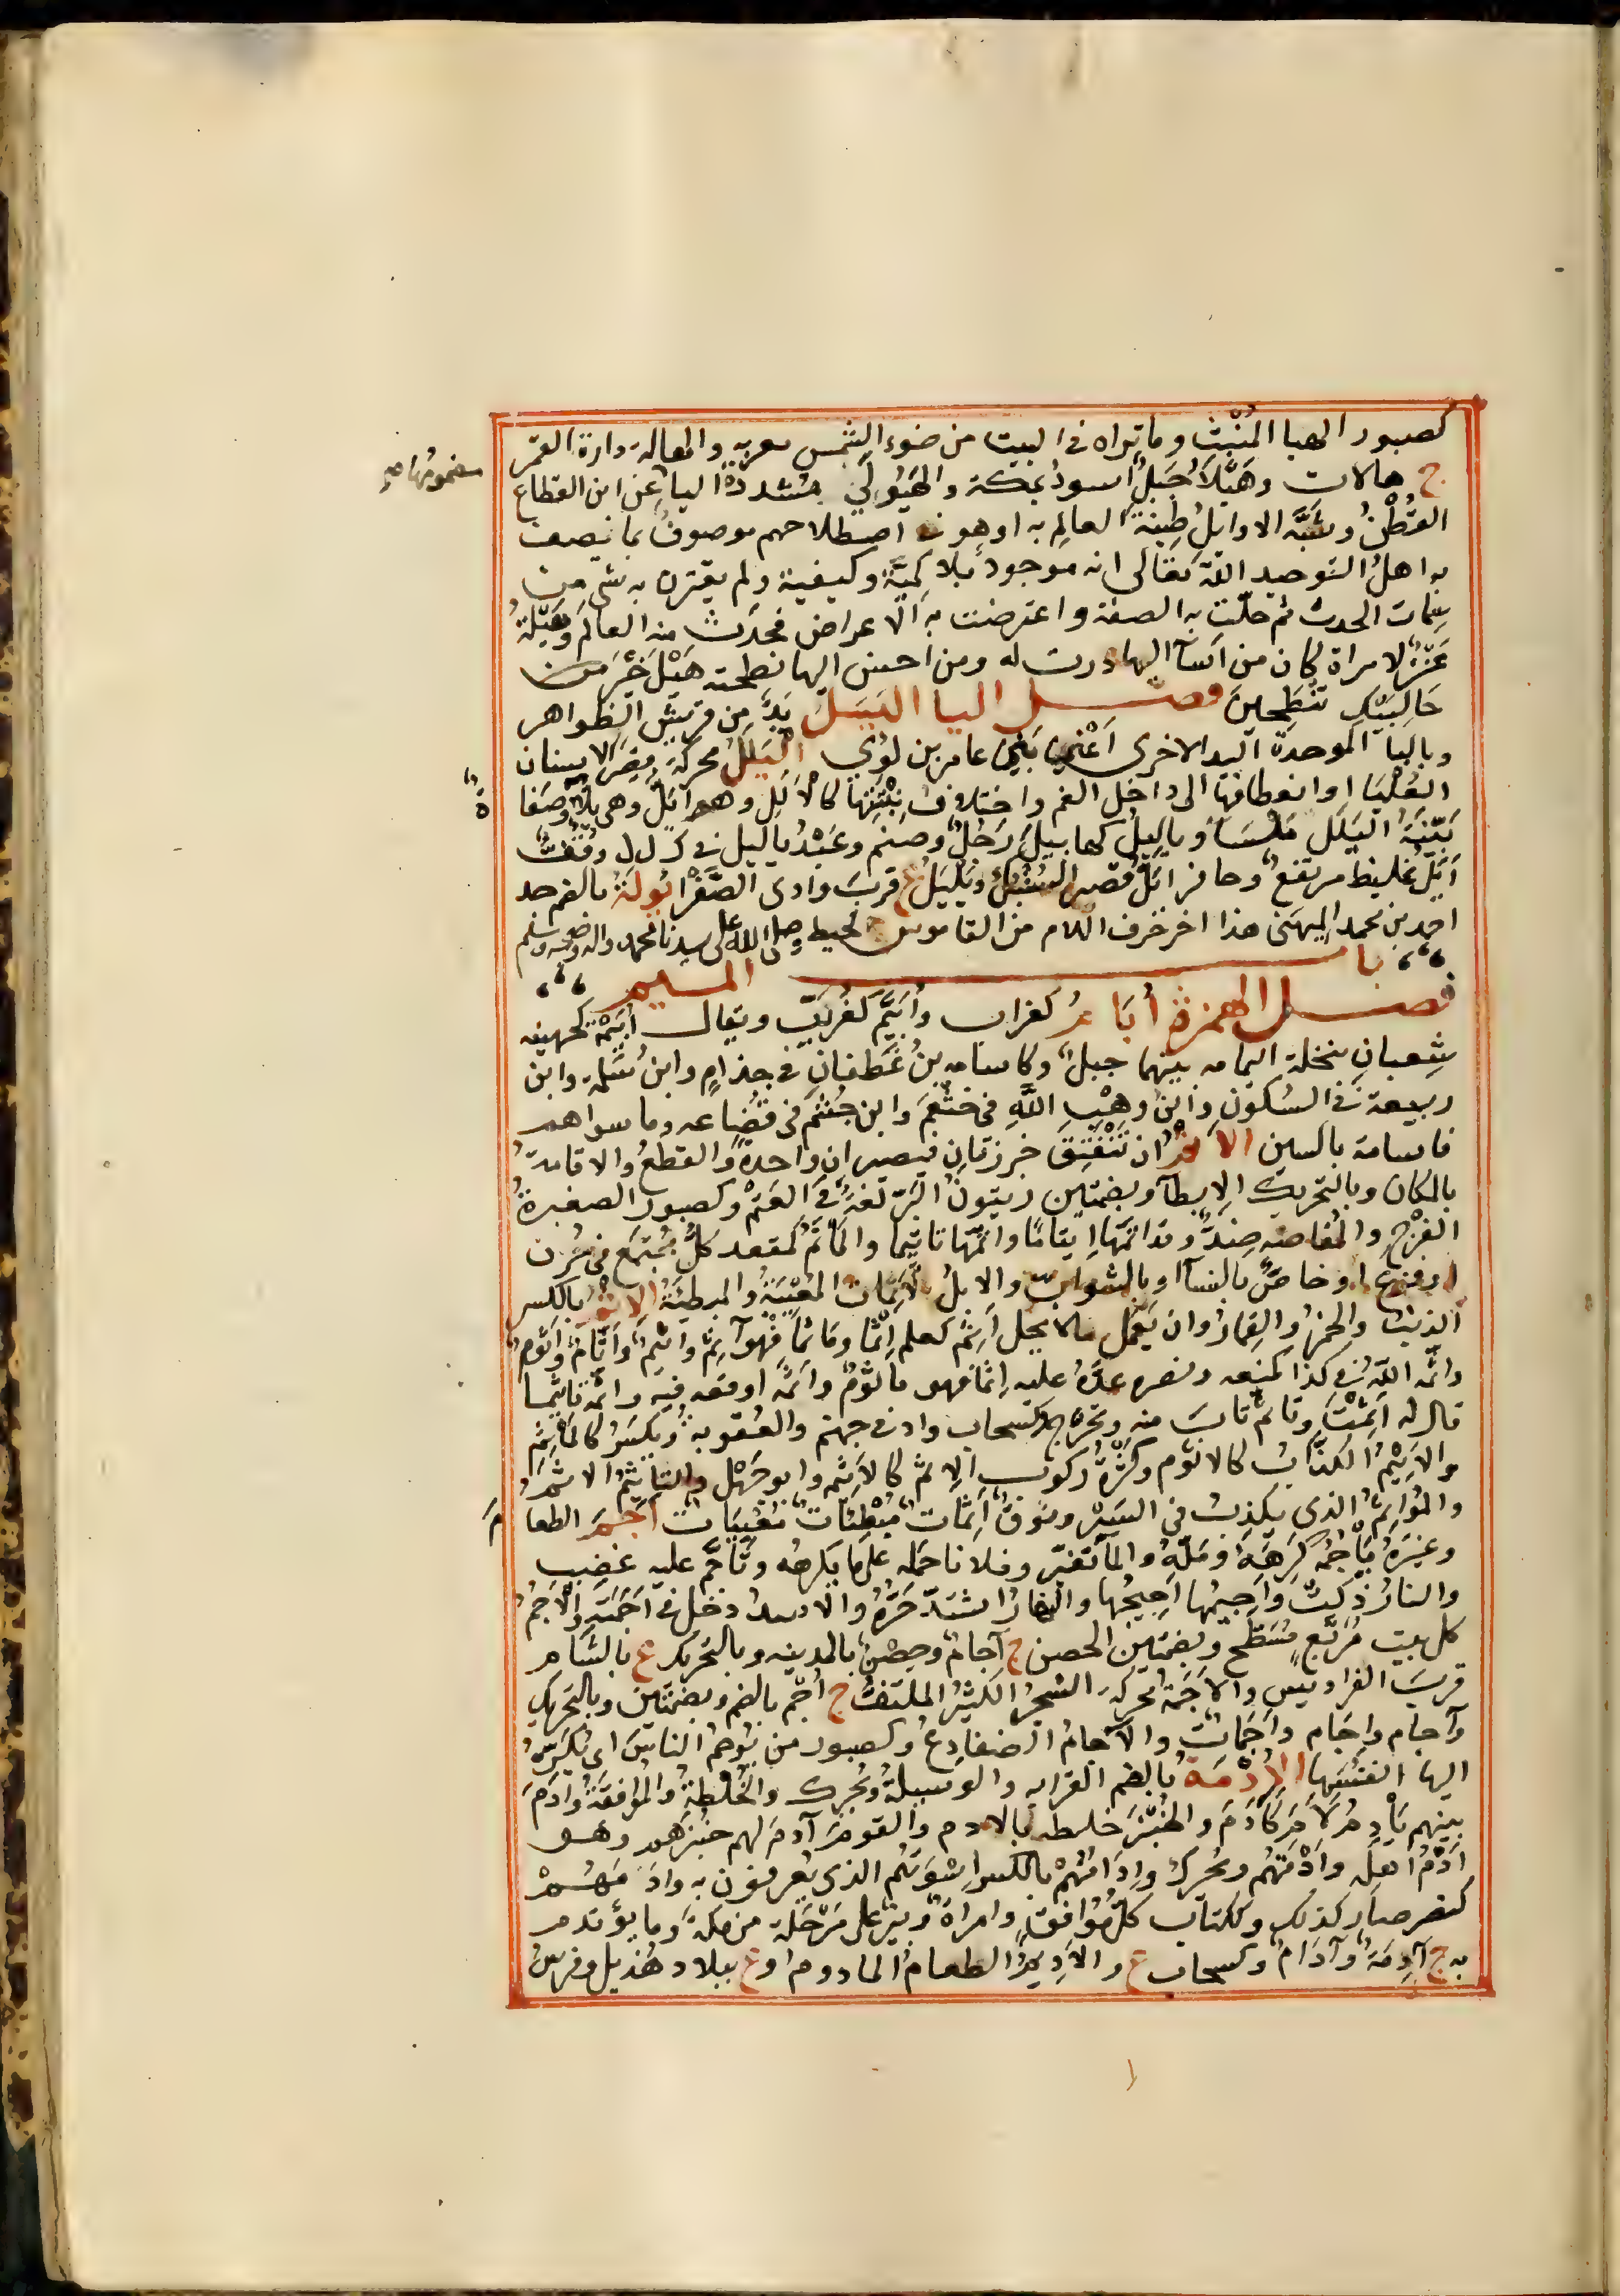 كصبور الهبا المُنْبَثّ وما تراه في البيت من ضوء الشمس معربه والهالة دارة القمر
ج هالات وهَيْلَا جَبَلٌ اسود بمكة والهَيُولَى مشددة اليا عن ابن القطاع
القُطْنُ وشَبَّه الاوايلُ طِينَةَ العالم به او هو في اصطلاحهم موصوف بما نصف
به اهلُ التوحيد الله تعالى انه موجود بلا كميَّة وكيفية ولم يقترن به شى من
سِمات الحدث ثم حلّت به الصفة واعترضت به الاعراض فحدث منه العالم وهَيْلَةُ
عَنْزٌ لامراة كان من اسآ اليها درت له ومن احسن اليها نطحته هَيْلَ خَيْرَ من
حَالِبَيْكِ تَنْطَحِينَ فصل اليا اليَيَلُ يَدٌ من قريش الظواهر
وبالبا الموحدة اليد الاخرى اعْنِي بَنِي عامر بن لوي اليَلَلُ محركة قِصَرُ الاسنان
العُلْيَا او انعطافها الى داخل الفم واختلاف نِبْتَتِهَا كالاَلَلِ وهو اَيَلُّ وهي يلّا وصَفَا
ة
بَيِّنَةُ اليَلَل مَلْسَا وياليلُ كهابيلَ رَجُلٌ وصنم وعَبْدُ ياليل في ك ل ل وقُفٌّ
اَيَلُّ غليظ مرتفع وحافر اَيَلُّ قصير السُّنْبُك ويَلْيَلُ ع قرب وادى الصَّفْرا يُولَةُ بالضم جد
احمد بن محمد المِيهَنى هذا اخر حرف اللام من القاموس المحيط وصلى الله على سيدنا محمد واله وصحبه وسلم
باب الميم
فصل الهمزة أبَامُ كغراب وأُبَيَّم كغُرَيِّب ويقال أُبَيْمَة كجهينه
شِعبانِ بنخلة اليمامه بينهما جبل وكاسامه بنُ غَطفان في جذامٍ وابن سَلمة وابن
ربيعة في السكون وابن وهْب الله في خثعَم وابن جُشَم في قضاعه وما سواهم
فاسامة بالسين الاَتْمُ ان تَنْفَتِق خرزتان فيصيران واحدة والقطعُ والاقامةُ
بالمكان وبالتحريك الابطآ وبضمتين زيتون البَرّ لغة في العُتُم وكصبور الصغيرة
الفرْج والمُفاضه ضِدٌّ وقد اتمّها ايتاما واتمّها تاتيما والماتَمُ كمقعد كلُّ مجتمع في حُزن
او فرح او خاصّ بالنسآ او بالشوابّ والابلُ الاَتِماتُ المُعْيِيَةُ والمبطِئَةُ الاِثْمُ بالكسر
الذنبُ والخمرُ والقِمارُ وان يَعْمَل مالا يحل اَثِمَ كعلم اِثْمًا ومَاثَمًا فهو آثِمٌ واثِيمٌ واثّامٌ واثُومٌ
واثَمَه اللهُ في كذا كمنعه ونصره عدّهُ عليه اِثما فهو ماثُومٌ وآثمَهُ اوقعه فيه واثَّمه تاثيما
قال له اَثِمْتَ وتاثّمَ تابَ منه وتحرّج وكسحاب واد في جهنم والعقوبة ويُكسَرُ كالمَاْثَم
والاَثِيمُ الكذّاب كالاَثوم وكَثْرَةُ ركوب الاِثم كالاَثيمه وابو جَهْل والتاثيمُ الاثمُ
والمُوَاثِمُ الذي يكذِب في السَيْر ونُوقٌ آثِمَات مُبْطِئَات مُعْيِيَات اَجَمَ الطعا
مَ
وغيرَهُ يَاْجِمُه كَرِهَهُ ومَلّهُ والما تغيّر وفلانا حمله على ما يكرهه وتاجَّم عليه غضِب
والنارُ ذكَتْ واجيمُها اجيجُها والنهارُ اشتدّ حَرّهُ والاسدُ دخل في اَجَمَتِه والاَجْمُ
كل بيت مُرَبَّع مُسَطَّح وبضمتين الحصن ج آجامٌ وحِصْنٌ بالمدينه وبالتحريك ع بالشام
قرب الفراديس والاَجَمَةُ محركة الشجرُ الكثيرُ الملتفّ ج اُجْم بالضم وبضمتين وبالتحريك
وآجام واِجَام واَجَمَات والآجامُ الضفادِعُ وكصبور من يُوجِمُ الناسَ اى يُكَرِّه
اليها انفُسَها الاُدْمَة بالضم القرابه والوسيلة ويُحرك والخُلْطة والموافقة واَدَمَ
بينهم يَأْدِمُ لاَمَ كآدَمَ والخُبْزَ خلطه بالادم والقومَ آدَمَ لهم خبزَهم وهو
اَدْمُ اهله واَدْمَتهُم ويُحرك واِدَامُهُمْ بالكسر اِسْوَتُهُم الذي يُعرفون به واَدَمَهُمْ
كنصر صار كذلك وككتاب كلّ مُوَافق وامراة وبيرٌ على مَرْحَلَة من مكة وما يؤتدم
به ج آدِمَة وآدَام وكسحاب ع والاَدِيمُ الطعام المادوم وع ببلاد هُذيل وفرسُ